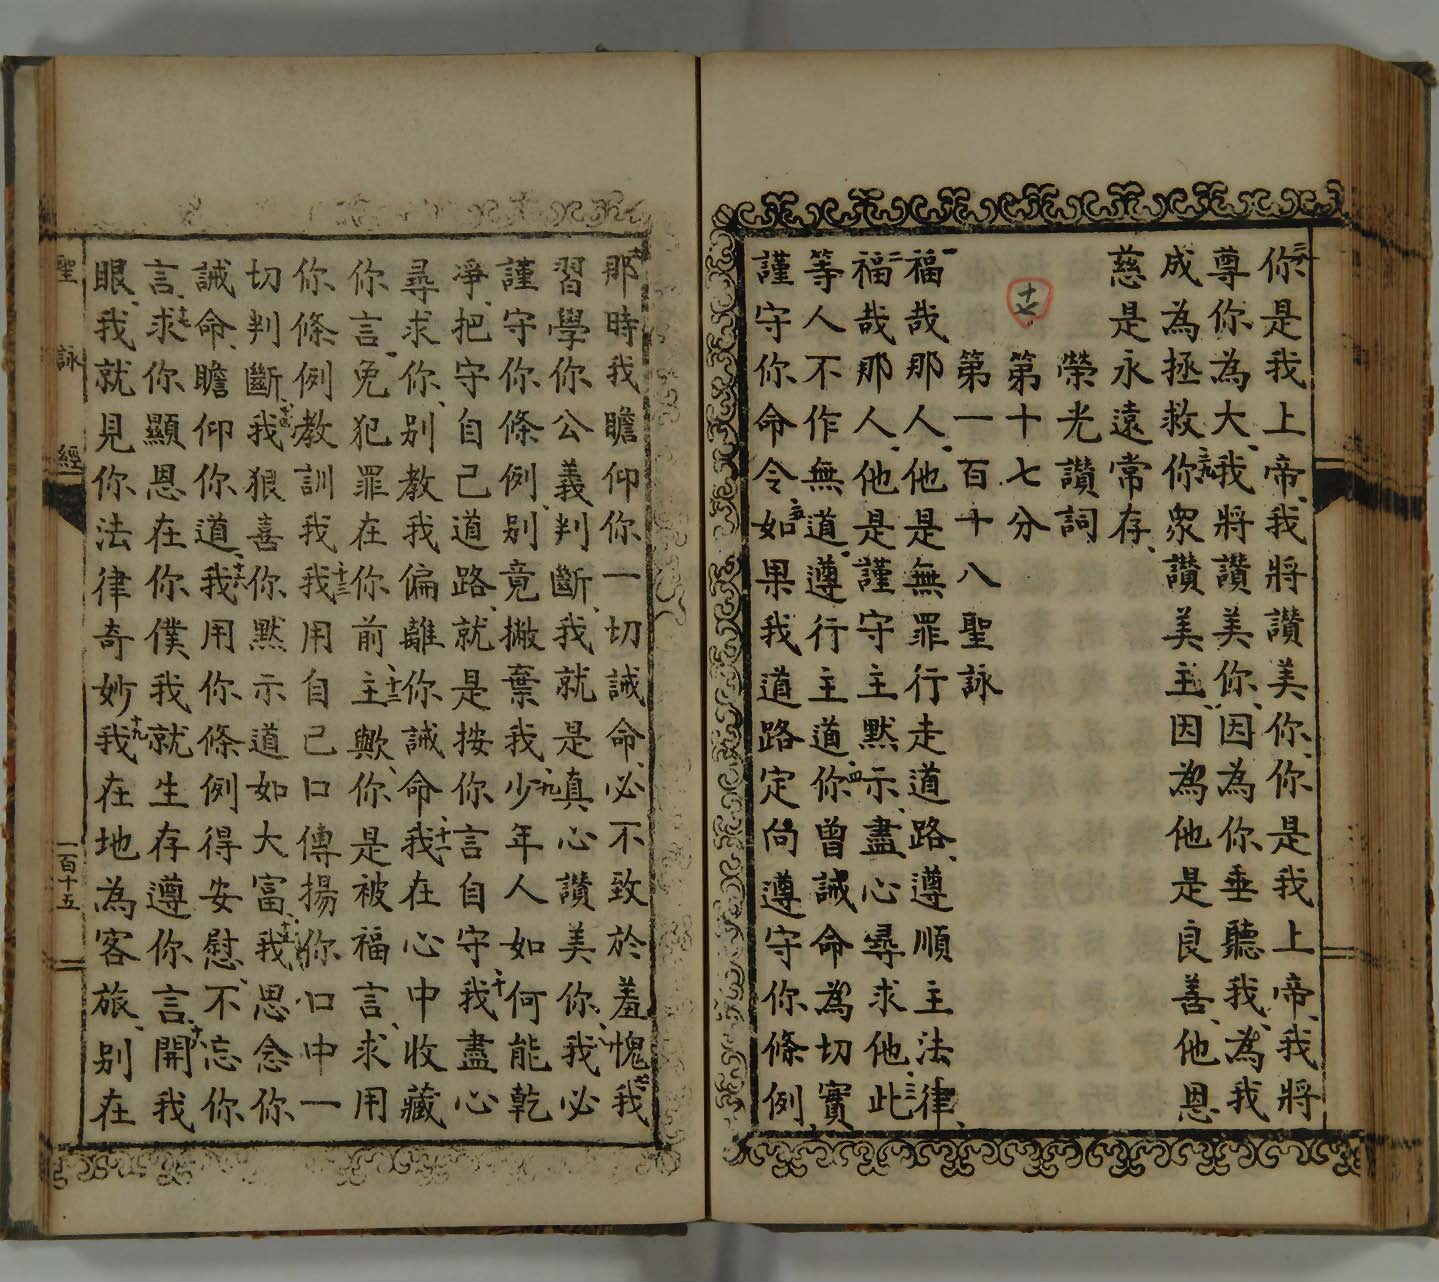 二八你是我上帝、我將讚美你、你是我上帝、我將
尊你為大、我將讚美你、因為你垂聽我、為我
成為拯救二九你衆讚美主、因為他是良善、他恩
慈是永遠常存、
榮光讚詞
十七
第十七分
第一百十八聖詠
一福哉那人、他是無罪行走道路、遵順主法律、
二福哉那人、他是謹守主默示、盡心尋求他、三此
等人不作無道、遵行主道、四你曾誡命為切實
謹守你命令五如果我道路定向遵守你條例、
六那時我瞻仰你一切誡命、必不致於羞愧七我
習學你公義判斷、我就是真心讚美你、八我必
謹守你條例、別竟撇棄我、九少年人如何能乾
凈、把守自己道路、就是按你言自守十我盡心
尋求你、別教我偏離你誡命、十一我在心中收藏
你言、免犯罪在你前十二主歟、你是被福言、求用
你條例教訓我十三我用自己口傳揚你口中一
切判斷、十四我狠喜你默示道如大富、十五我思念你
誡命、瞻仰你道、十六我用你條例得安慰、不忘你
言、十七求你顯恩在你僕、我就生存遵你言、十八開我
眼、我就見你法律奇妙十九我在地為客旅、別在
聖詠經
一百十五